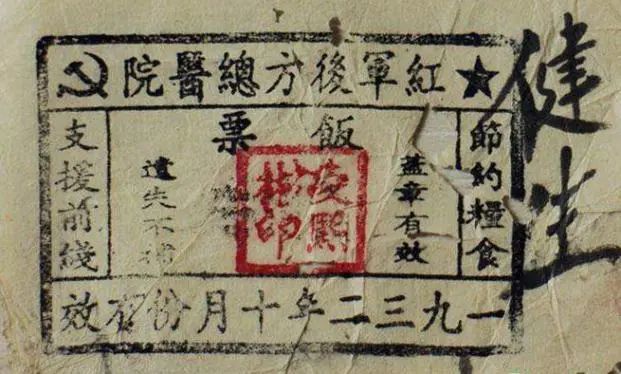 紅軍後方總醫院
飯票
節約糧食
蓋章有效
遺失不補
支援前綫
一九三二年十月份有效
健生